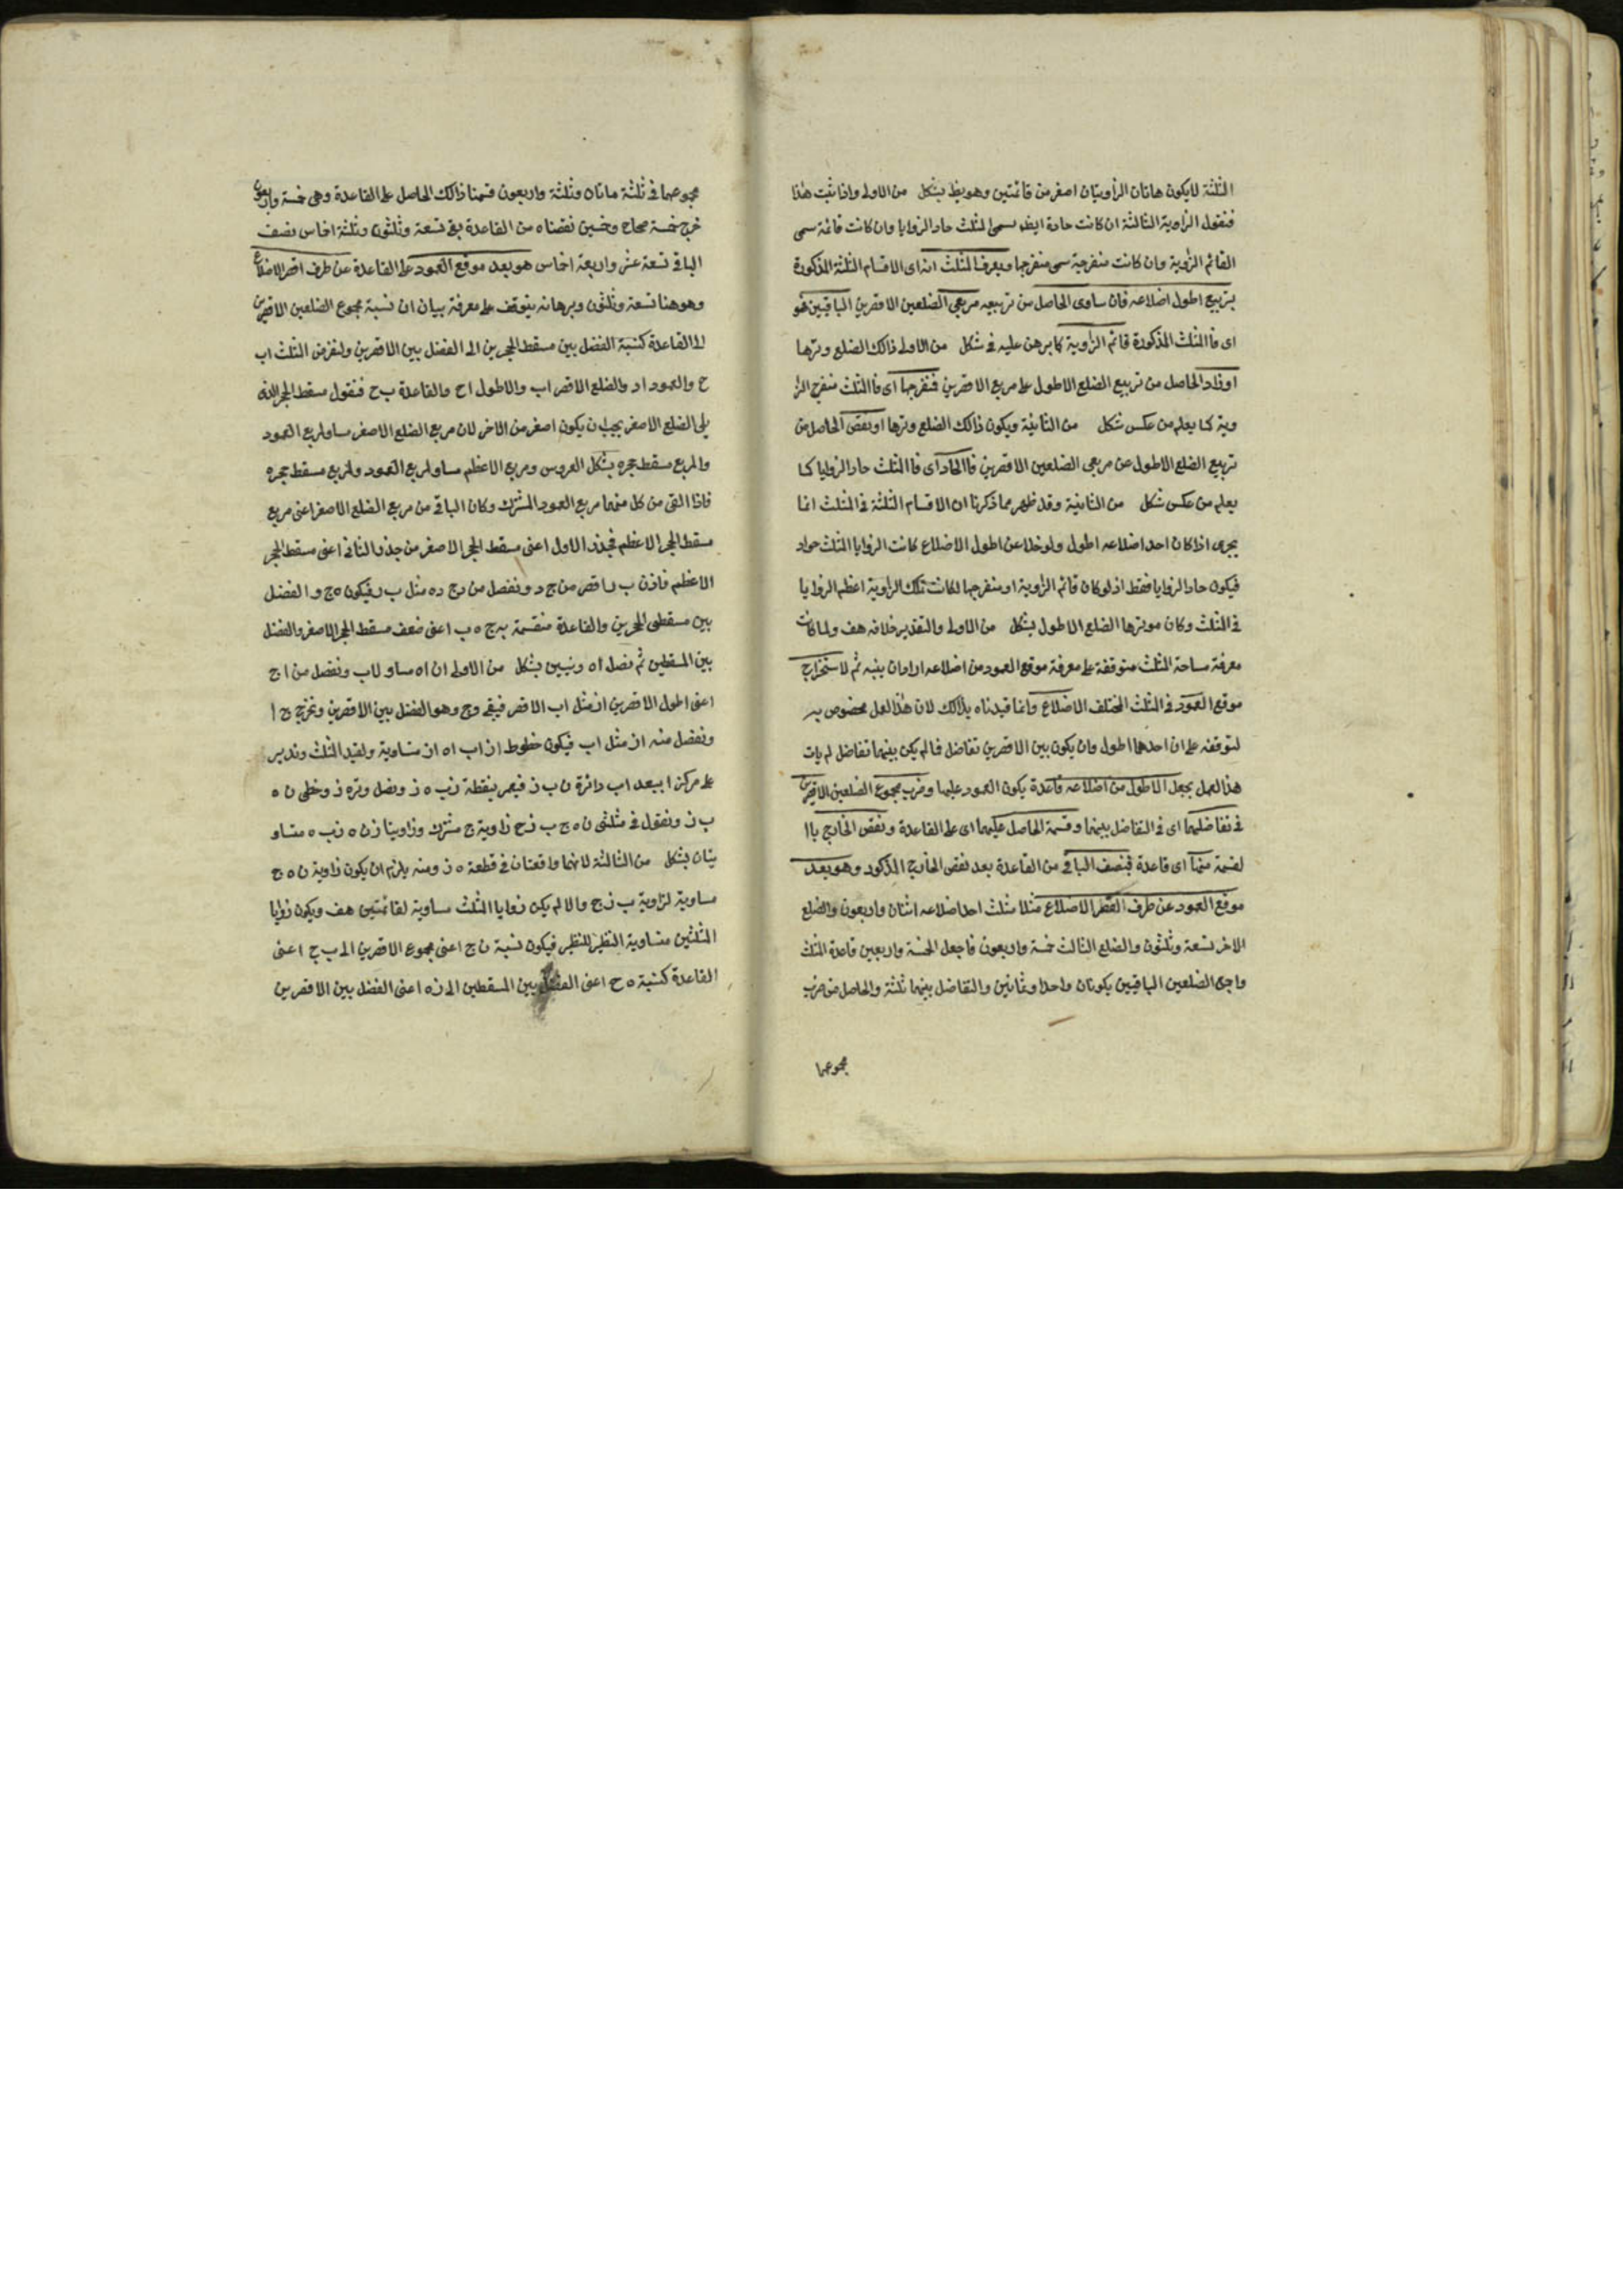 الثلثة لا يكون هاتان الزاويتان اصغر من قائمتين وهو يظ بشكل من الاولى واذا ثبت هذا
فنقول الزاوية الثالثة ان كانت حادة ايظ يسمى المثلث حاد الزوايا وان كانت قائمة سمى
القائم الزاوية وان كانت منفرجة سمى منفرجها ويعرف المثلث انه اى الاقسام الثلثة المذكورة
بتربيع اطول اضلاعه فان ساوى الحاصل من تربيعه مربعى الضلعين الاقصرين الباقيين فهو
اى فالمثلث المذكورة قائم الزاوية كما برهن عليه فى شكل من الاولى ذالك الضلع وترها
او زاد الحاصل من تربيع الضلع الاطول على مربع الاقصرين فمنفرجها اى فالمثلث منفرج الزا
وية كما يعلم من عكس شكل من الثانية ويكون ذالك الضلع وترها او نقص الحاصل من
تربيع الضلع الاطول عن مربعى الضلعين الاقصرين فالحاد اى فالمثلث حاد الزوايا كما
يعلم من عكس شكل من الثانية وقد ظهر مما ذكرنا ان الاقسام الثلثة فى المثلث انما
يجرى اذا كان احد اضلاعه اطول ولو خلا عن اطول الاضلاع كانت الزوايا المثلث حواد
فيكون حاد الزوايا فقط اذ لو كان قائم الزاوية او منفرجها لكانت تلك الزاوية اعظم الزوايا
فى المثلث وكان موترها الضلع الاطول بشكل من الاولى والتقدير خلافه هف ولما كانت
معرفة مساحة المثلث متوقفة على معرفة موقع العمود من اضلاعه اراد ان ينبه ثم لاستخراج
موقع العمود فى المثلث المختلف الاضلاع وانما قيدناه بذالك لان هذا العمل مخصوص به
لتوقفه على ان احدها اطول وان يكون بين الاقصرين تفاضل فما لم يكن بينهما تفاضل لم يات
هذا العمل يجعل الاطول من اضلاعه قاعدة يكون العمود عليها وضرب مجموع الضلعين الاقصرين
فى تفاضلهما اى فى التفاضل بينهما وقسمة الحاصل عليهما اى على القاعدة ونقص الخارج باا
لقسمة منها اى قاعدة فنصف الباقى من القاعدة بعد نقص الخارج المذكور وهو بعد
موقع العمود عن طرف اقصر الاضلاع مثلا مثلث احد اضلاعه اثنان واربعون والضلع
الاخر تسعة وثلثون والضلع الثالث خمسة واربعون فاجعل الخمسة واربعين قاعدة المثلث
واجمع الضلعين الباقيين يكونان واحدا وثمانين والتفاضل بينهما ثلثة والحاصل من ضرب
مجموعهما
مجموعهما فى ثلثة ماتان وثلثة واربعون قسمنا ذالك الحاصل على القاعدة وهى خمسة واربعون
خرج خمسة صحاح وخمسين نقصناه من القاعدة بقى تسعة وثلثون وثلثة اخماس نصف
الباقى تسعة عشر واربعة اخماس هو بعد موقع العمود على القاعدة عن طرف اقصر الاضلاع
وهو هنا تسعة وثلثون وبرهانه يتوقف على معرفة بيان ان نسبة مجموع الضلعين الاقصرين
الى القاعدة كنسبة الفضل بين مسقط الحجرين الى الفضل بين الاقصرين ولنفرض المثلث اب
ح والعمود اد والضلع الاقصر اب والاطول اح والقاعدة ب ح فنقول مسقط الحجر الذى
يلى الضلع الاصغر يجب ان يكون اصغر من الاخر لان مربع الضلع الاصغر مساو لمربع العمود
والمربع مسقط حجره بشكل العروس ومربع الاعظم مساو لمربع العمود ولمربع مسقط حجره
فاذا القى من كل منهما مربع العمود المشترك وكان الباقى من مربع الضلع الاصغر اعنى مربع
مسقط الحجر الاعظم فجذر الاول اعنى مسقط الحجر الاصغر من جذر الثانى اعنى مسقط الحجر
الاعظم فاذن ب د اقصر من ج د ونفصل من دج ده مثل ب د فيكون ه ج و الفضل
بين مسقطى الحجرين والقاعدة منقسمة به ج ه ب اعنى ضعف مسقط الحجر الاصغر والفضل
بين المسقطين ثم نصل اه ونبين بشكل من الاولى ان اه مساو لاب ونفصل من ا ج
اعنى اطول الاقصرين از مثل اب الاقصر فيبقى وج وهو الفضل بين الاقصرين ونخرج ج ا
ونفصل منه ان مثل اب فيكون خطوط ان اب اه از متساوية ولنعيد المثلث وندير
على مركز ا ببعد اب دائرة ن ب ز فيمر بنقطة ن ب ه ز ونصل وتر ه ز وخطى ن ه
ب ز ونقول فى مثلثى ن ه ج ب ز ح زاوية ج مشترك وزاويتا ز ن ه ز ب ه متساو
يتان بشكل من الثالثة لانهما واقعتان فى قطعة ه ز ومنه يلزم ان يكون زاوية ن ه ج
مساوية لزاوية ب ز ج والا لم يكن زوايا المثلث مساوية لقائمتين هف ويكون زوايا
المثلثين متساوية النظير للنظير فيكون نسبة ن ج اعنى مجموع الاقصرين الى ب ج اعنى
القاعدة كنسبة ه ح اعنى الفضل بين المسقطين الى ز ه اعنى الفضل بين الاقصرين